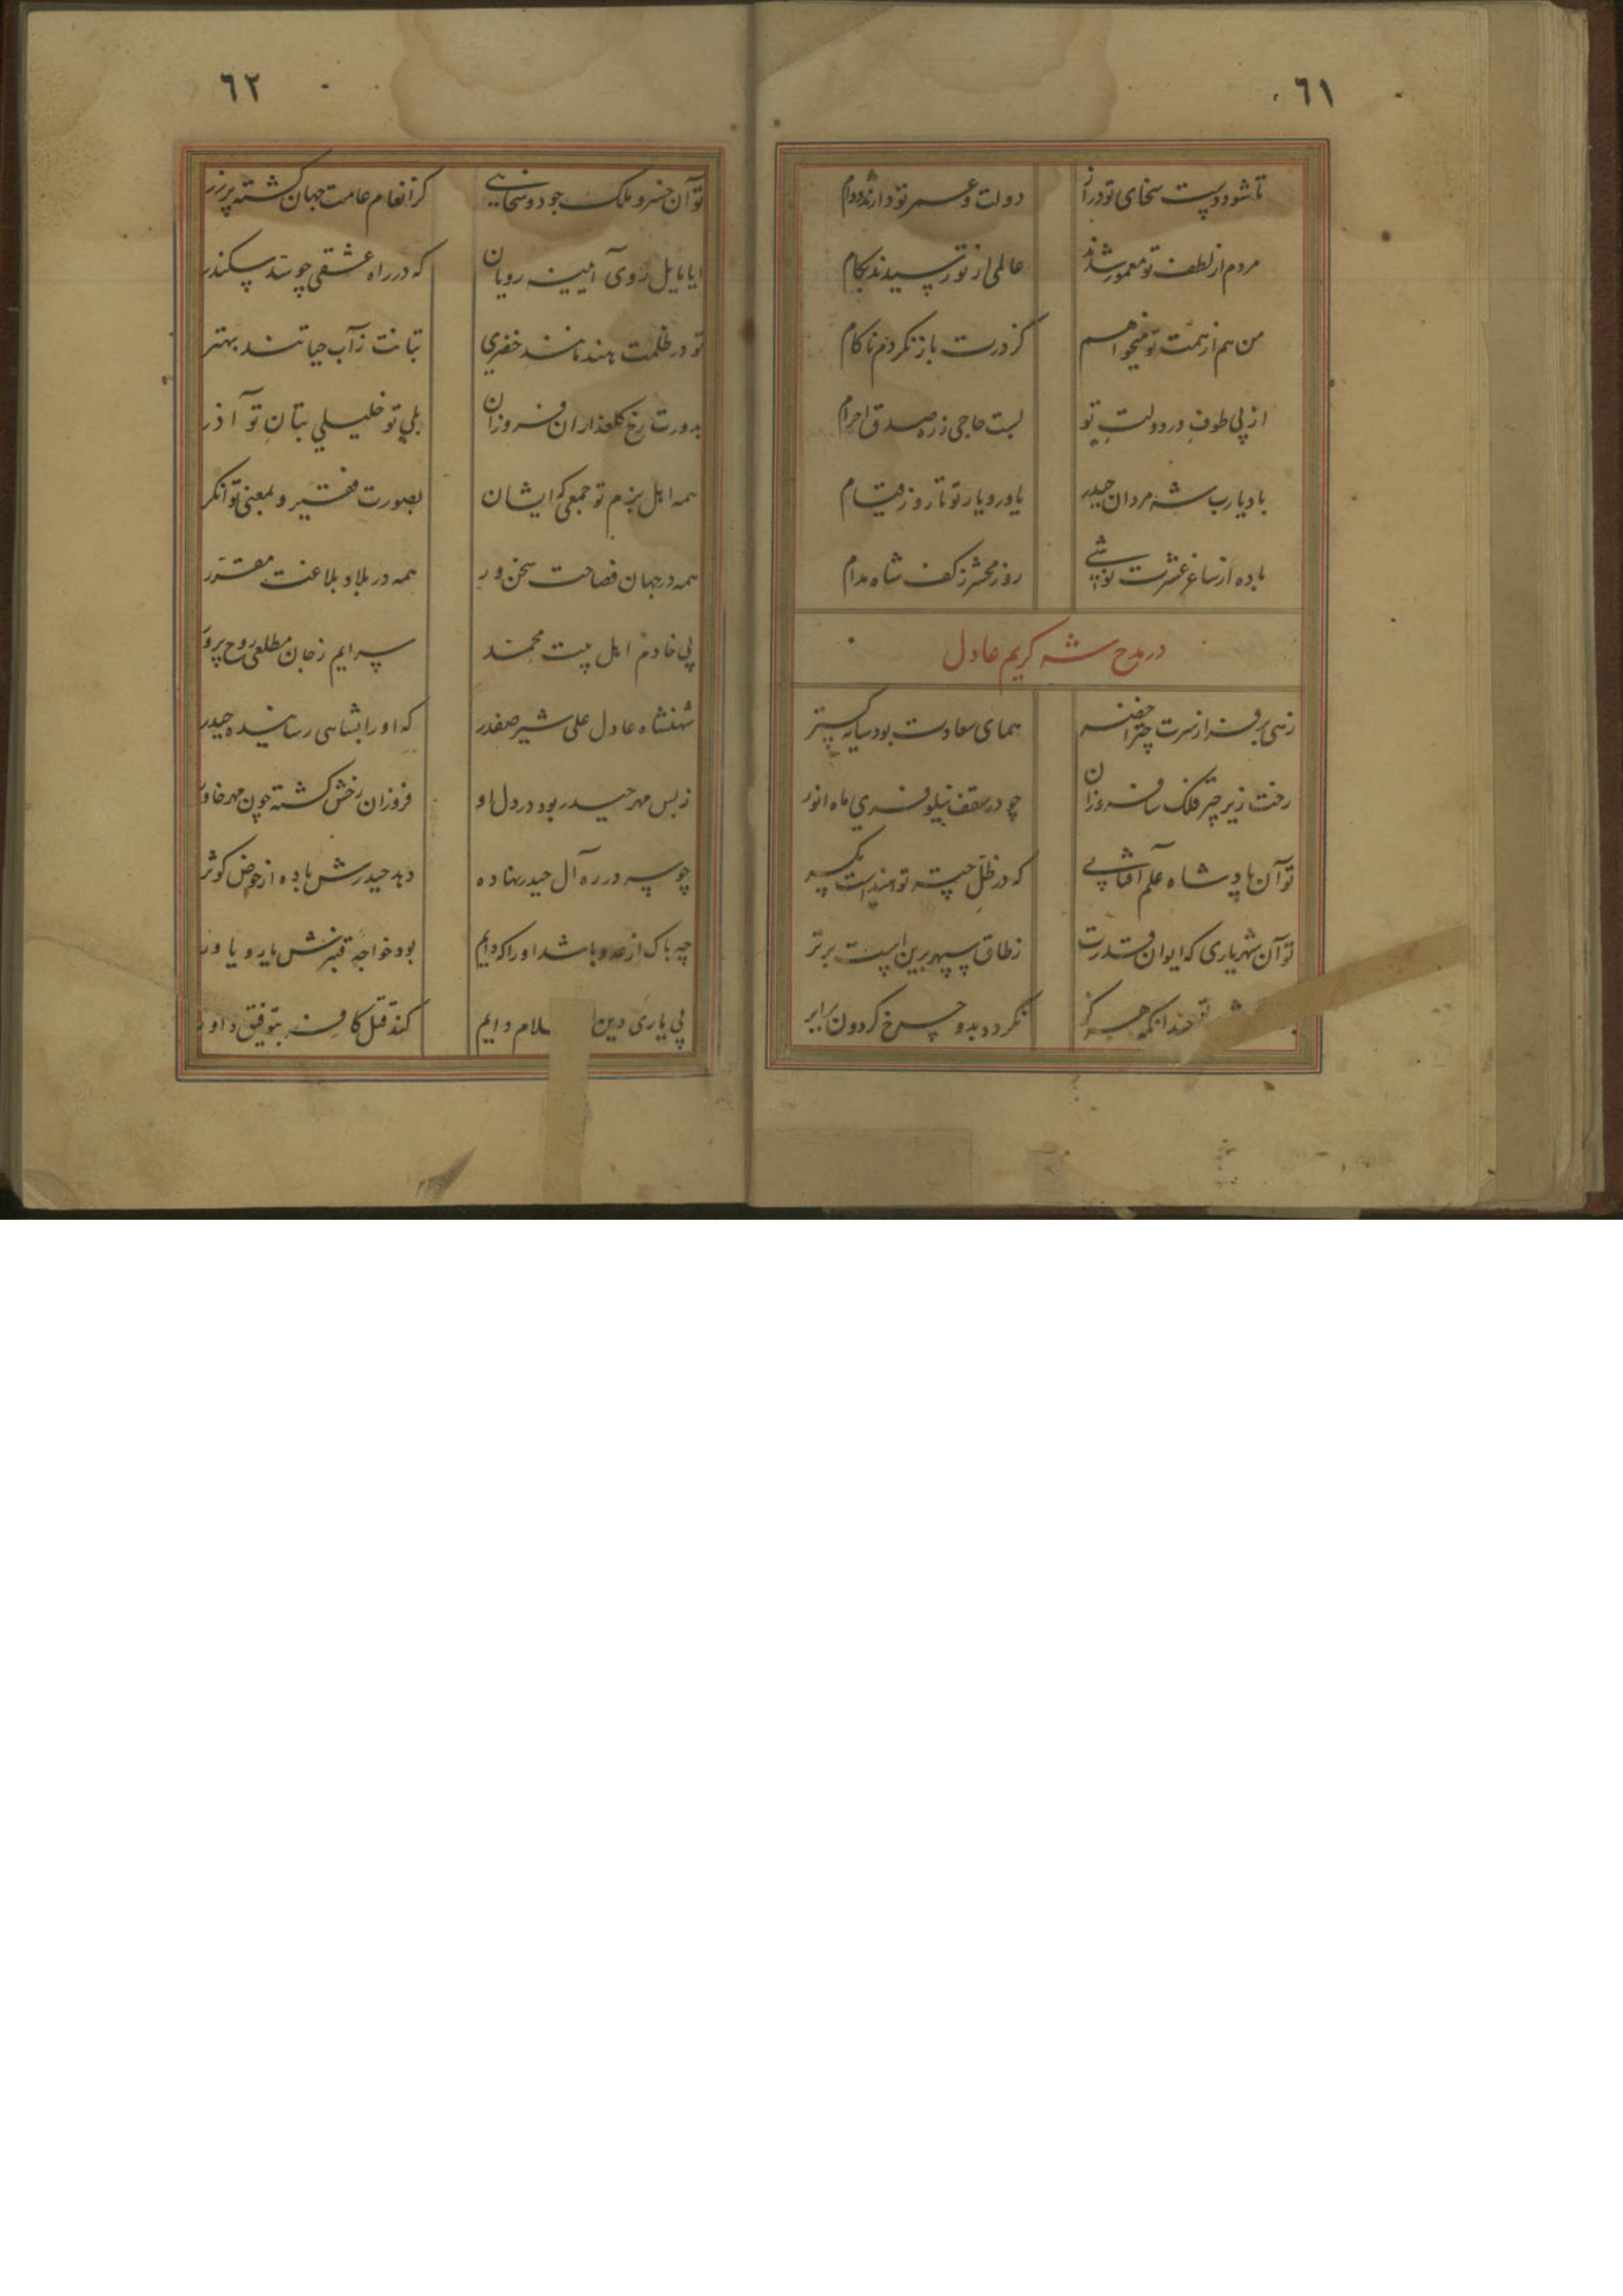 ٦١
تا شود دست سخای تو دراز
دولت و عمر تو دارند دوام
مردم از لطف تو معمور شدند
عالمی از تو رسیدند بکام
من هم از همت تو میخواهم
کز درت باز نکردم ناکام
از پی طوف در دولت تو
بست حاجی ز ره صدق احرام
باد یارب شه مردان حیدر
یاور و یار تو تا روز قیام
باده از ساغر عشرت نوشی
روز محشر ز کف شاه مدام
در مدح شه کریم عادل
زهی بر فراز سرت چتر اخضر
همای سعادت بود سایه گستر
رخت زیر چتر فلک سا فروزان
چو در سقف نیلوفری ماه انور
تو آن پادشاه علم آفتابی
که در ظل چتر تو هند است یکسر
تو آن شهریاری که ایوان قدرت
ز طاق سپهر برین است برتر
چندانکه هرگز
نگردد بدو چرخ گردون برابر
٦٢
تو آن خسرو ملک جود و سخایی
کز انعام عامت جهان گشته پر زر
ایا مایل روی آیینه رویان
که در راه عشقی چو سد سکندر
تو در ظلمت هند مانند خضری
بتانت ز آب حیاتند بهتر
بدورت رخ گلعذاران فروزان
بلی تو خلیلی بتان تو آذر
همه اهل بزم تو جمعی که ایشان
بصورت فقیر و بمعنی توانگر
همه در جهان فصاحت سخن ور
همه در بلاد بلاغت مقرر
پی خادم اهل بیت محمد
سرایم ز جان مطلعی روح پرور
شهنشاه عادل علی شیر صفدر
که او را بشاهی رسانیده حیدر
ز بس مهر حیدر بود در دل او
فروزان رخش گشته چون مهر خاور
چو سر در ره آل حیدر نهاده
دهد حیدرش باده از حوض کوثر
چه باک از عدو باشد او را که دایم
بود خواجه قنبرش یار و یاور
پی یاری دین اسلام دایم
کند قتل کافر بتوفیق داور